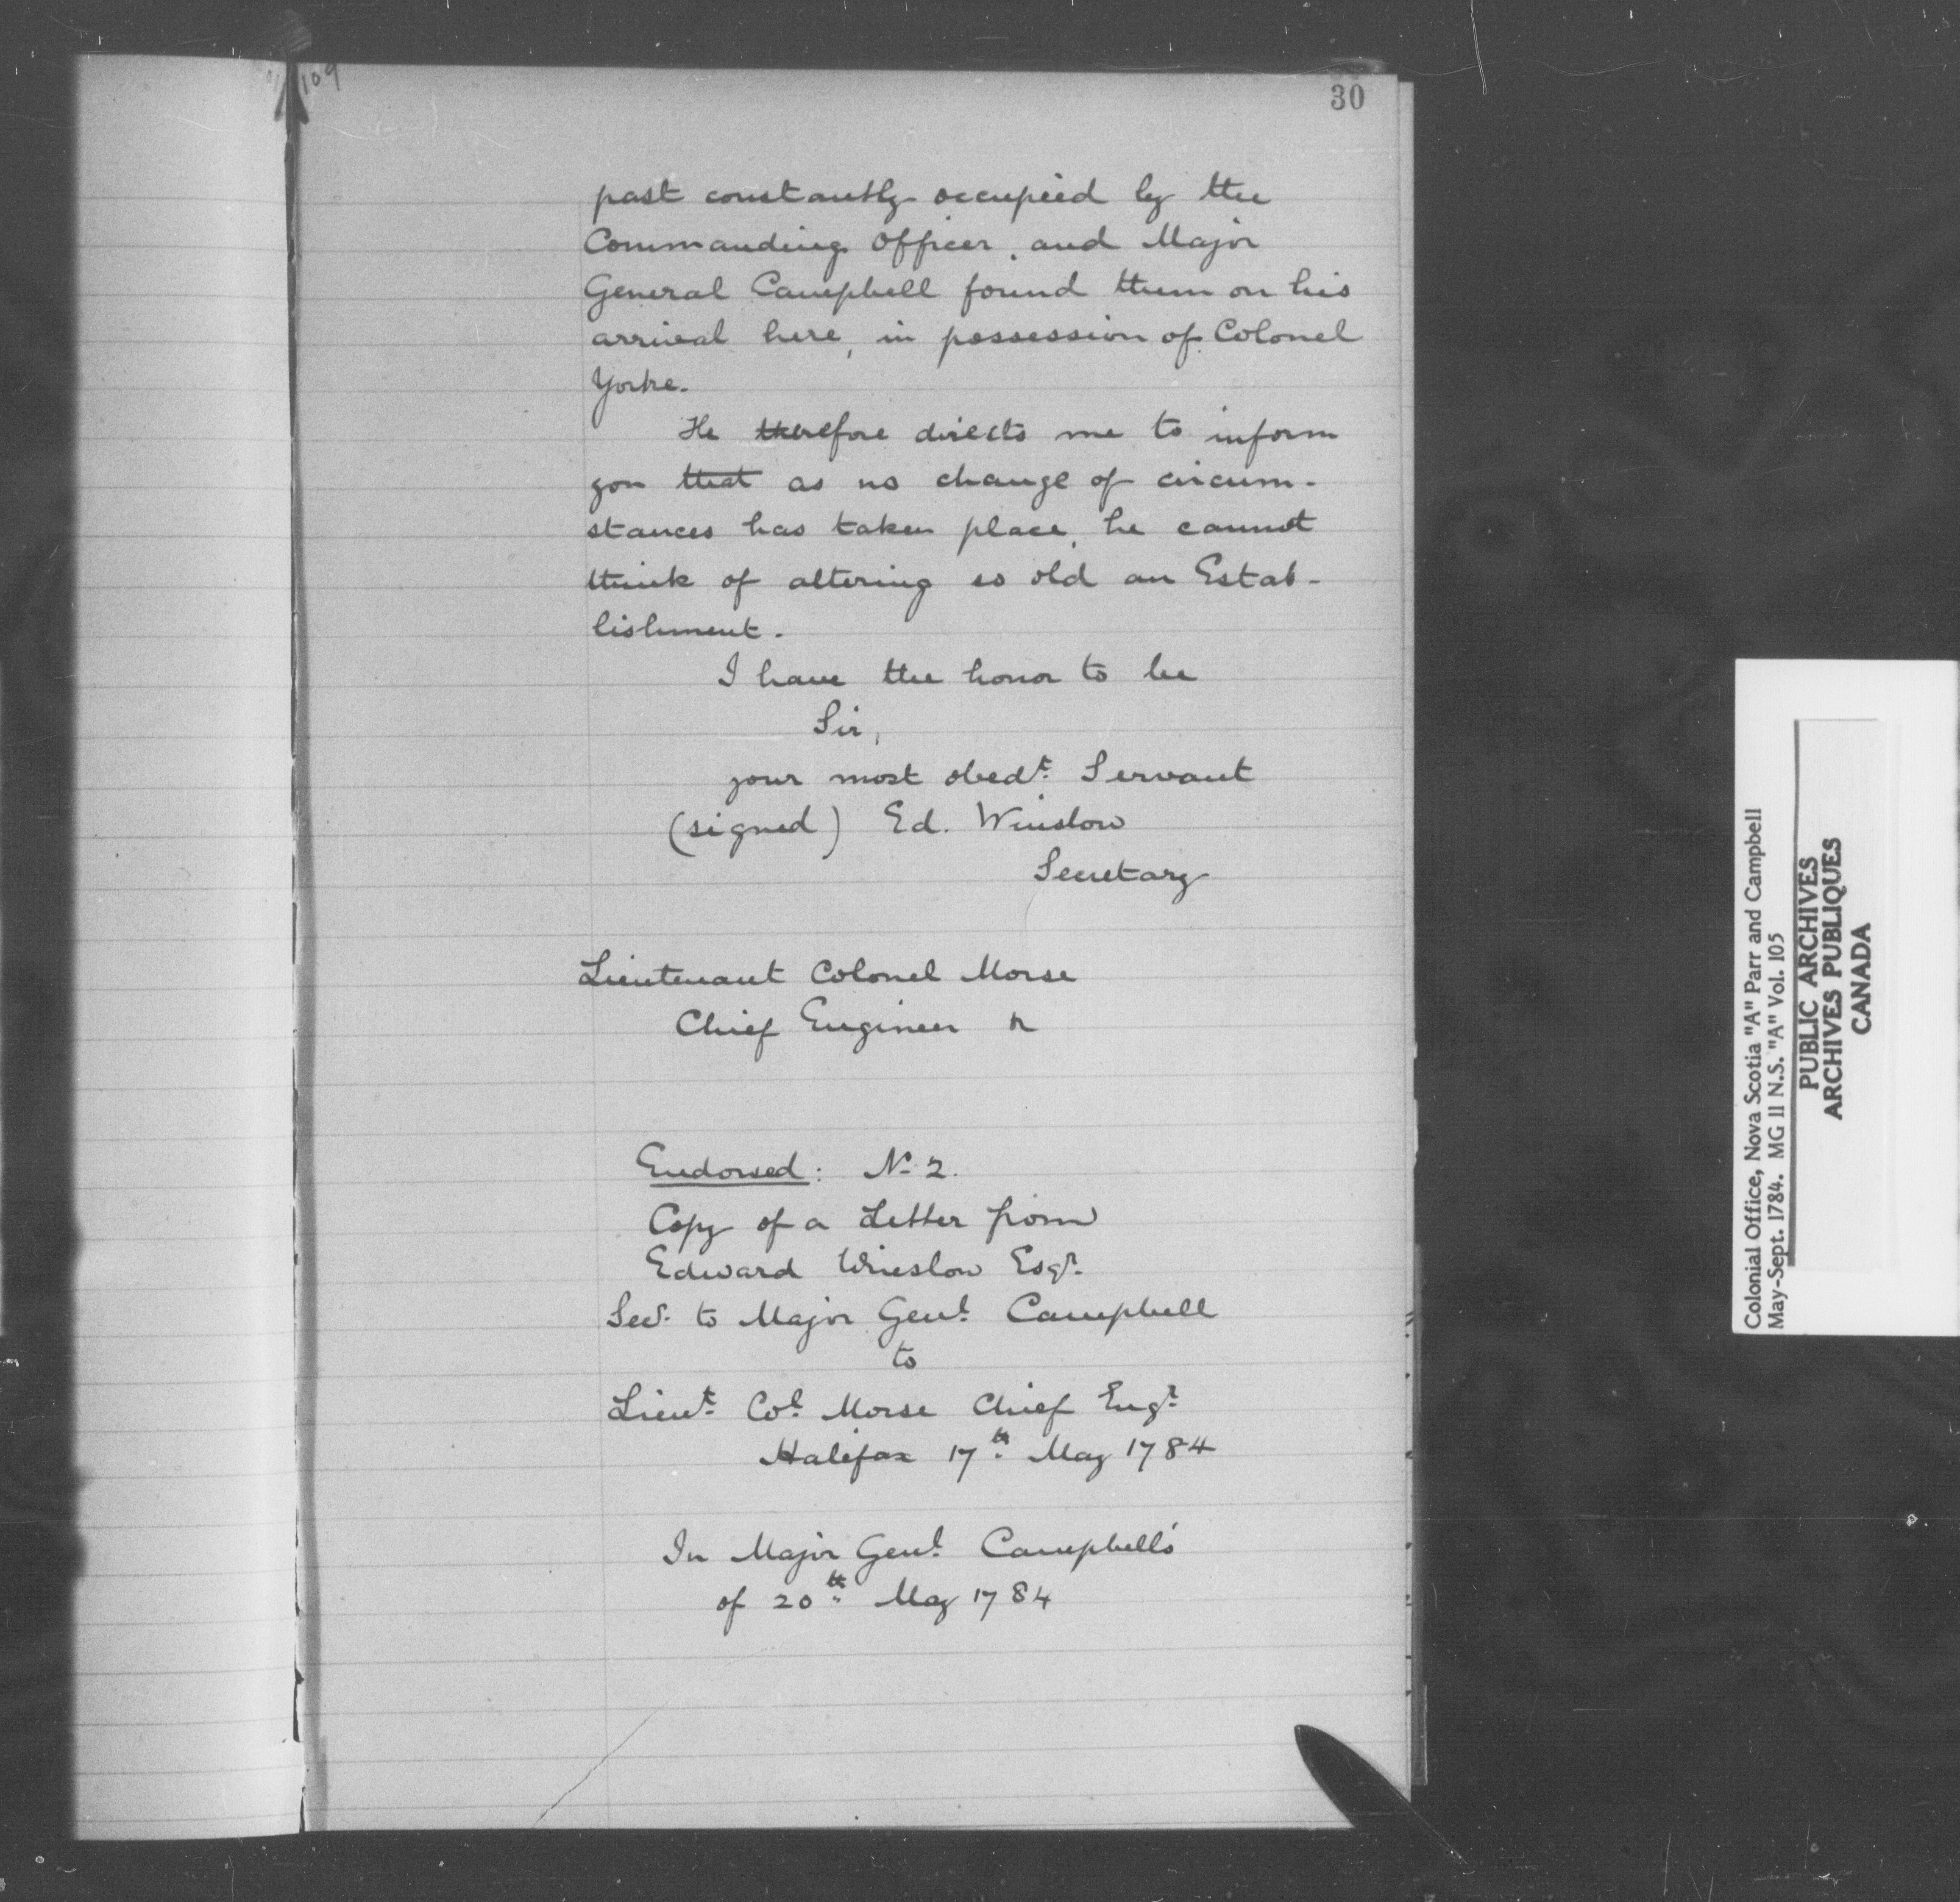 109
30
past constantly occupied by the
Commanding Officer, and Major
General Campbell found them on his
arrival here, in possession of Colonel
Yorke.
He therefore directs me to inform
you that as no change of circum-
stances has taken place, he cannot
think of altering so old an Estab-
lishment.
I have the honor to be
Sir,
your most obedt. Servant
(signed) Ed. Winslow
Secretary
Lieutenant Colonel Morse
Chief Engineer
Endorsed: No. 2.
Copy of a Letter from
Edward Winslow Esqr.
Secy. to Major Genl. Campbell
to
Lieut. Col. Morse Chief Engr.
Halifax 17th. May 1784
In Major Genl. Campbell's
of 20th. May 1784
Colonial Office, Nova Scotia "A" Parr and Campbell
May-Sept. 1784. MG 11 N.S. "A" Vol. 105
PUBLIC ARCHIVES
ARCHIVES PUBLIQUES
CANADA